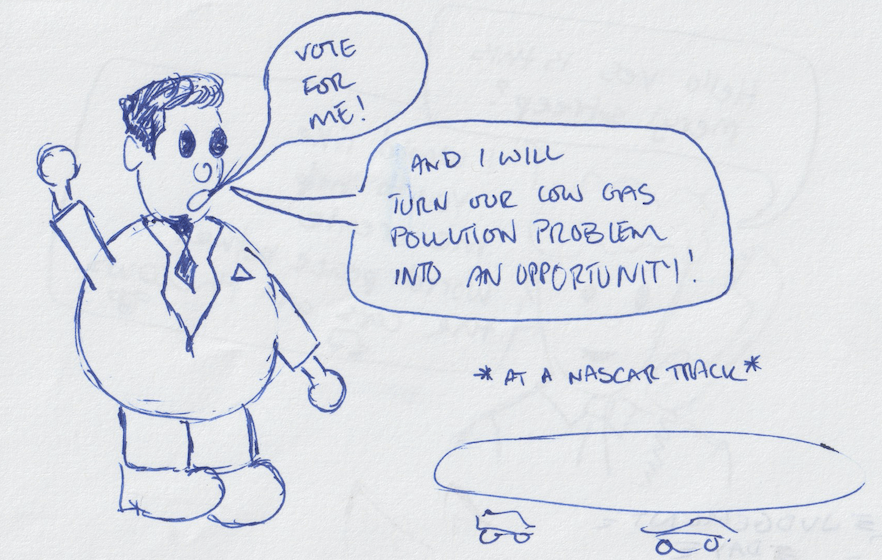 VOTE
FOR
ME!
AND I WILL
TURN OUR LOW GAS
POLLUTION PROBLEM
INTO AN OPPORTUNITY!
*AT A NASCAR TRACK*